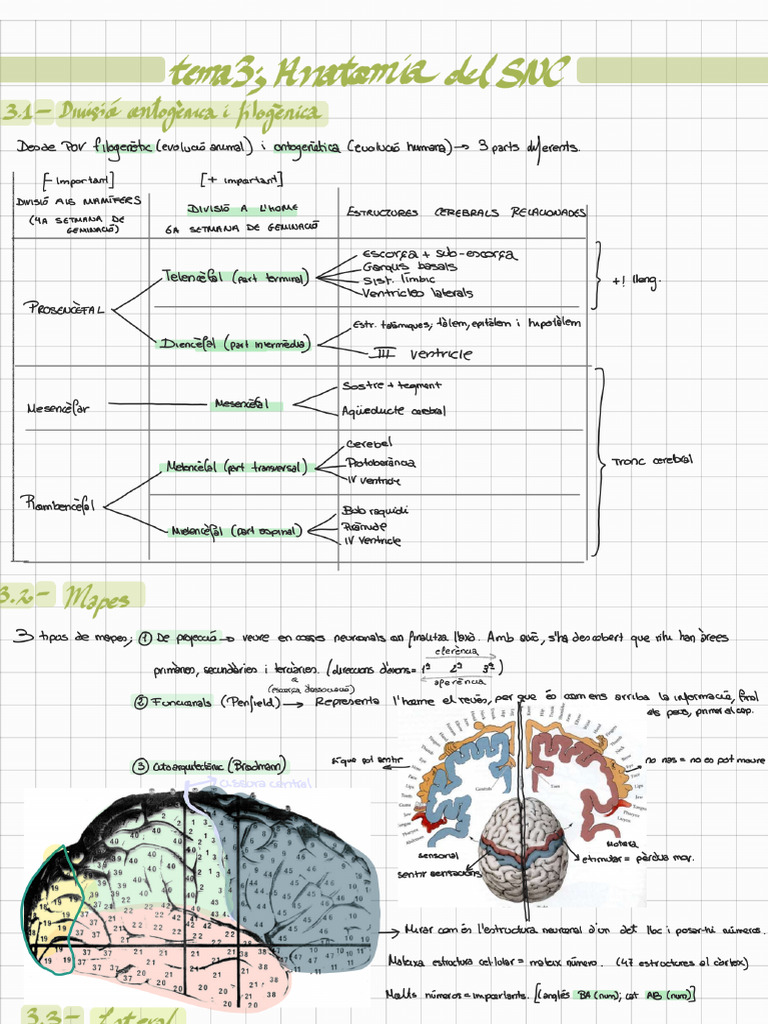 tema 3; Anatomia del SNC
3.1- Divisió ontogènica i filogènica
Desde POV filogenètic (evolució animal) i ontogenètica (evolució humana) → 3 parts diferents.
[- important] [+ important]
DIVISIÓ ALS MAMÍFERS (4A SETMANA DE GEMINACIÓ)
DIVISIÓ A L'HOME
6A SETMANA DE GEMINACIÓ
ESTRUCTURES CEREBRALS RELACIONADES
PROSENCÈFAL
Telencèfal (part terminal)
Escorça + sub-escorça
Ganglis basals
Sist. límbic
Ventricles laterals
+! lleng.
Diencèfal (part intermèdia)
Estr. talàmiques; tàlem, epitàlem i hipotàlem
III ventricle
Mesencèfal
Mesencèfal
Sostre + tegment
Aqüeducte cerebral
Tronc cerebral
Rombencèfal
Metencèfal (part transversal)
Cerebel
Protoberància
IV ventricle
Mielencèfal (part espinal)
Bulb raquidi
IV ventricle
3.2- Mapes
3 tipos de mapes; ① De projecció → veure en coses neuronals on finalitza això. Amb això, s'ha descobert que hi han àrees
primàries, secundàries i terciàries. (direccions d'arons= 1ª 2ª 3ª)
eferència
aferència
② Funcionals (Penfield) → Representa l'home el revés, per que és com ens arriba la informació, final
els peus, primer el cap.
③ Citoarquitectònic (Brodmann)
cissura central
sí que pot sentir
no nas = no es pot moure
sensorial
sentir sensacions
Motora
estimular = pèrdua mov.
→ Mirar com és l'estructura neuronal d'un det. lloc i posar-hi números.
Mateixa estructura cel·lular = mateix número. (47 estructures al còrtex)
Molts números = importants. [(anglès BA (num); cat AB (num)]
3.3- Lateral